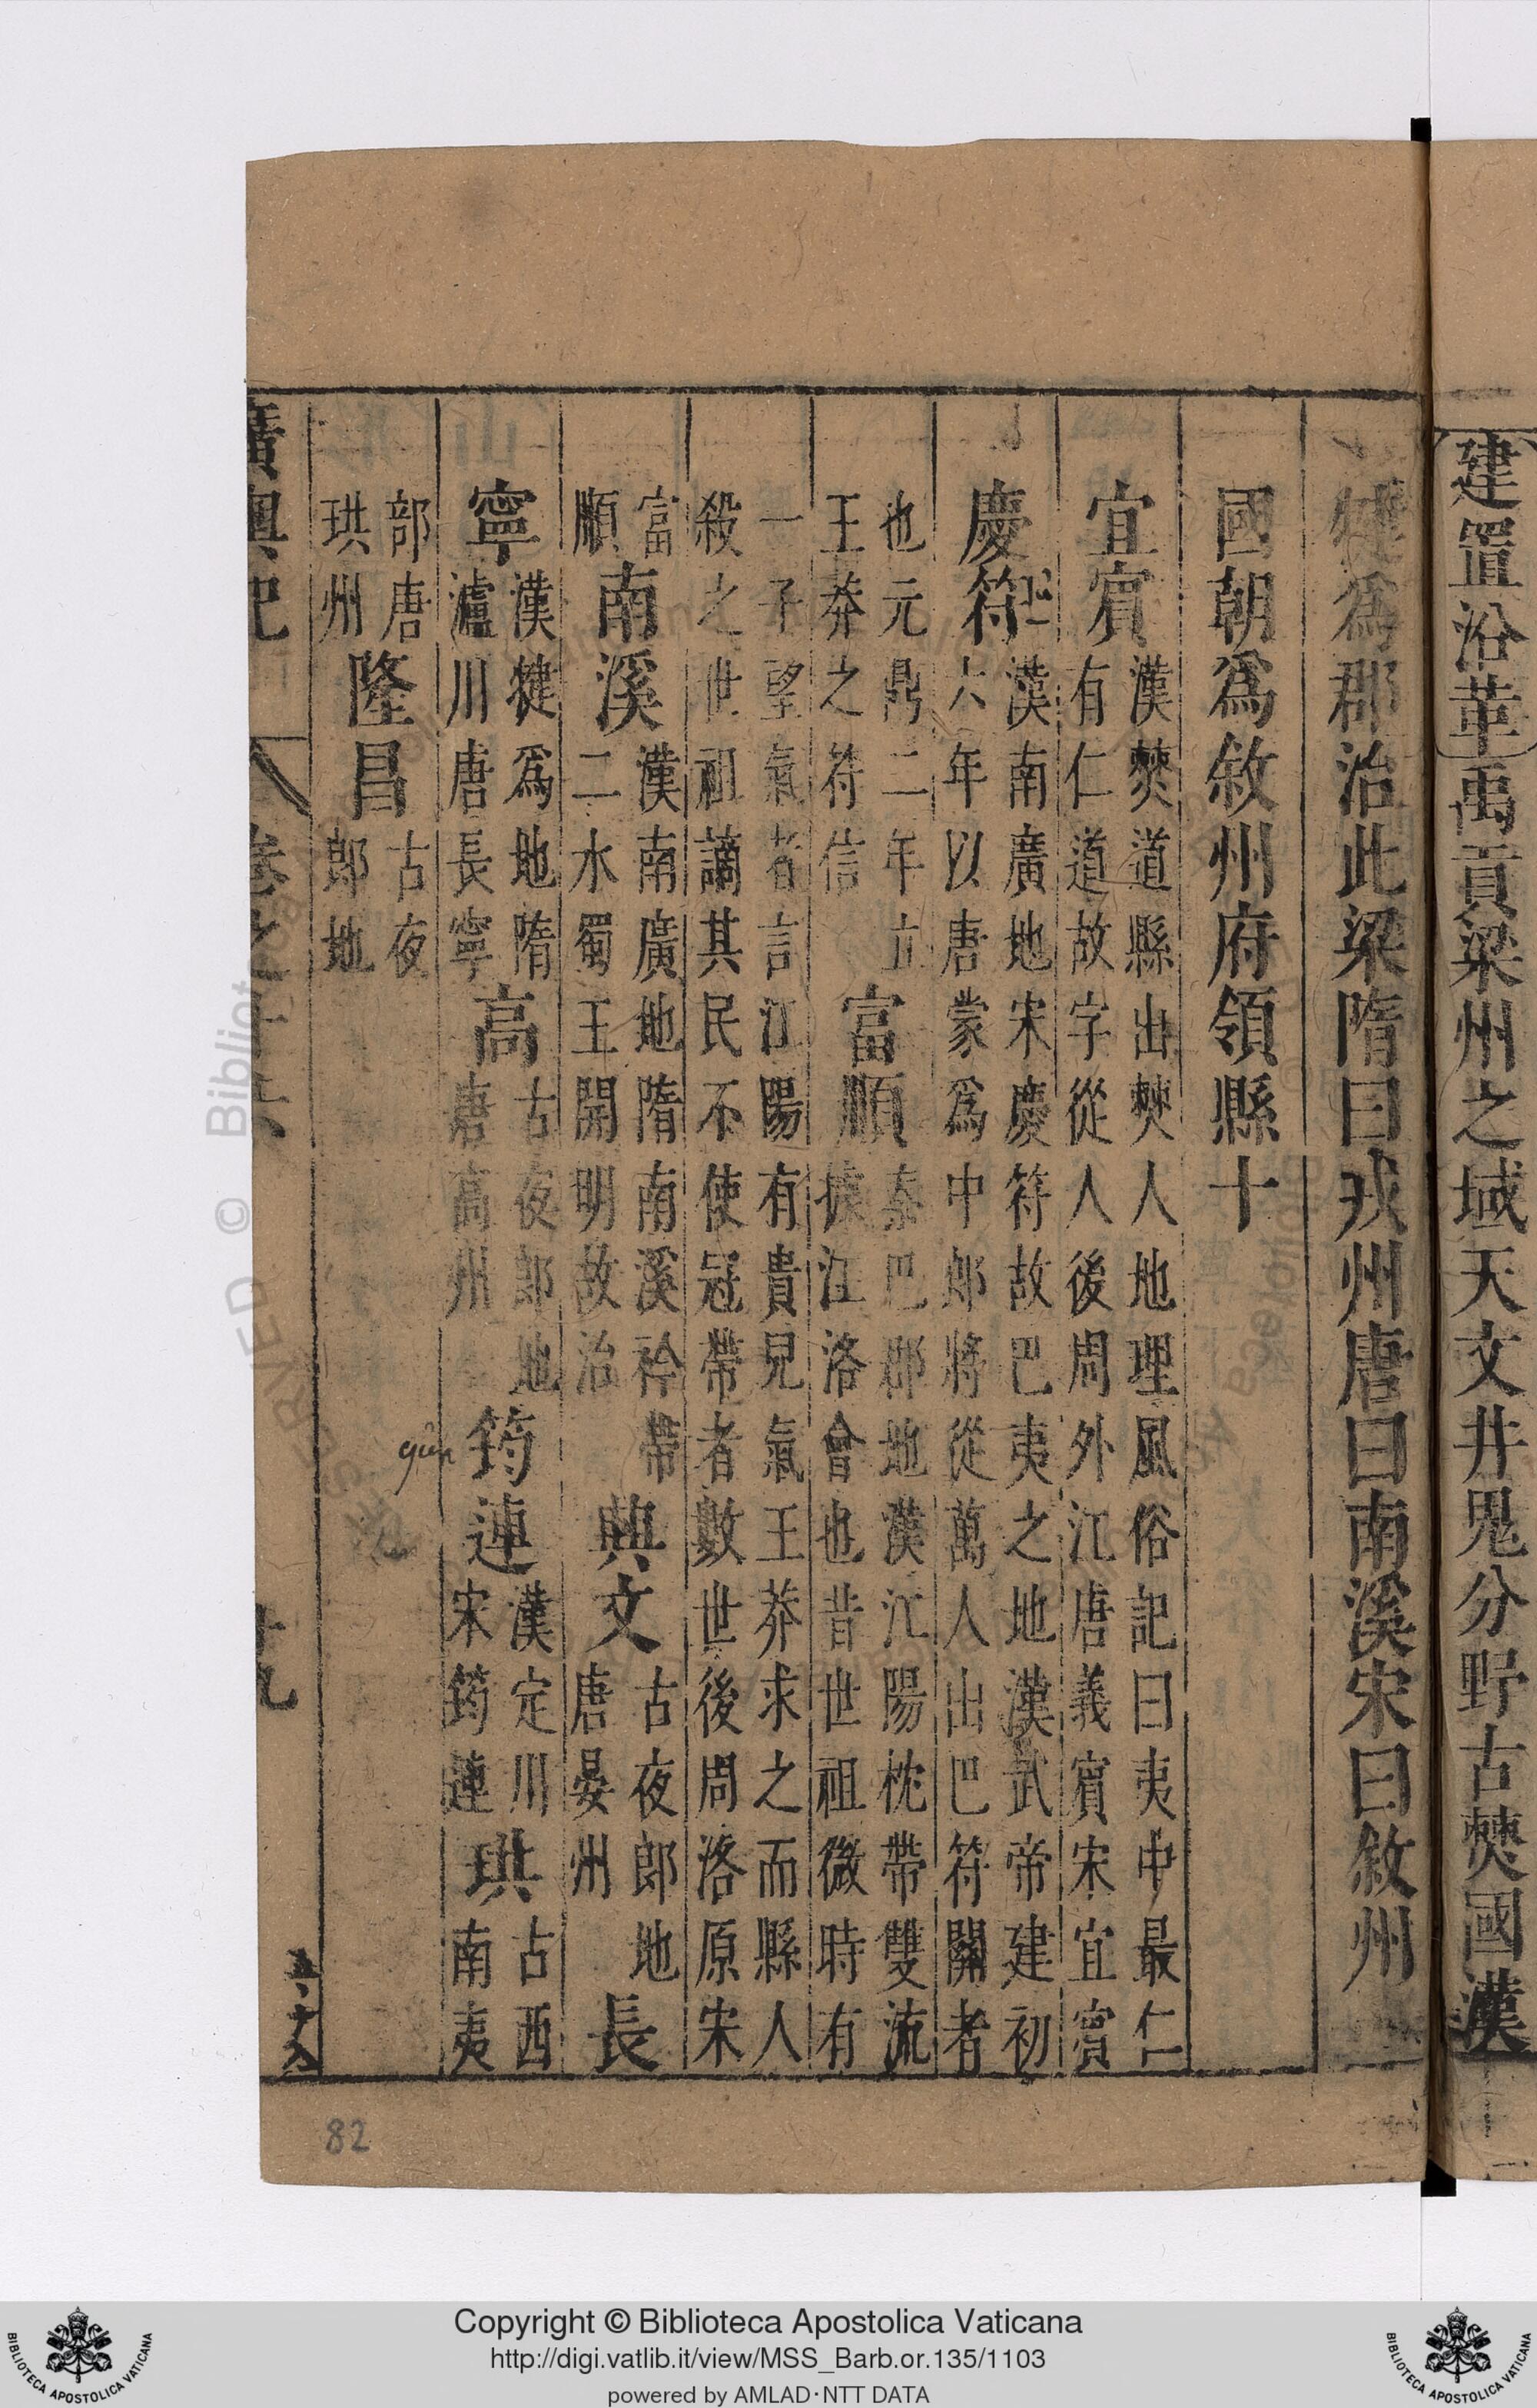 建置沿革禹貢梁州之域天文井鬼分野古僰國漢
犍為郡治此梁隋曰戎州唐曰南溪宋曰敘州
國朝爲敘州府領縣十
宜賓漢僰道縣出僰人地理風俗記曰夷中最仁
有仁道故字從人後周外江唐義賓宋宜賓
慶符漢南廣地宋慶符故巴夷之地漢武帝建初
六年以唐蒙爲中郎將從萬人出巴符關者
也元鼎二年立
王莽之符信
富順秦巴郡地漢江陽枕帶雙流
據江洛會也昔世祖微時有
一子望氣者言江陽有貴兒氣王莽求之而縣人
殺之世祖謫其民不使冠帶者數世後周洛原宋
富
順
南溪漢南廣地隋南溪衿帶
二水蜀王開明故治
興文古夜郎地
唐晏州
長
寧漢犍爲地隋
瀘川唐長寧
高古夜郎地
唐高州
筠連漢定川
宋筠連
珙古西
南夷
部唐
珙州
隆昌古夜
郎地
gûn
廣輿記
卷之十六
十九
82
Copyright © Biblioteca Apostolica Vaticana
http://digi.vatlib.it/view/MSS_Barb.or.135/1103
powered by AMLAD·NTT DATA
BIBLIOTECA APOSTOLICA VATICANA
BIBLIOTECA APOSTOLICA VATICANA